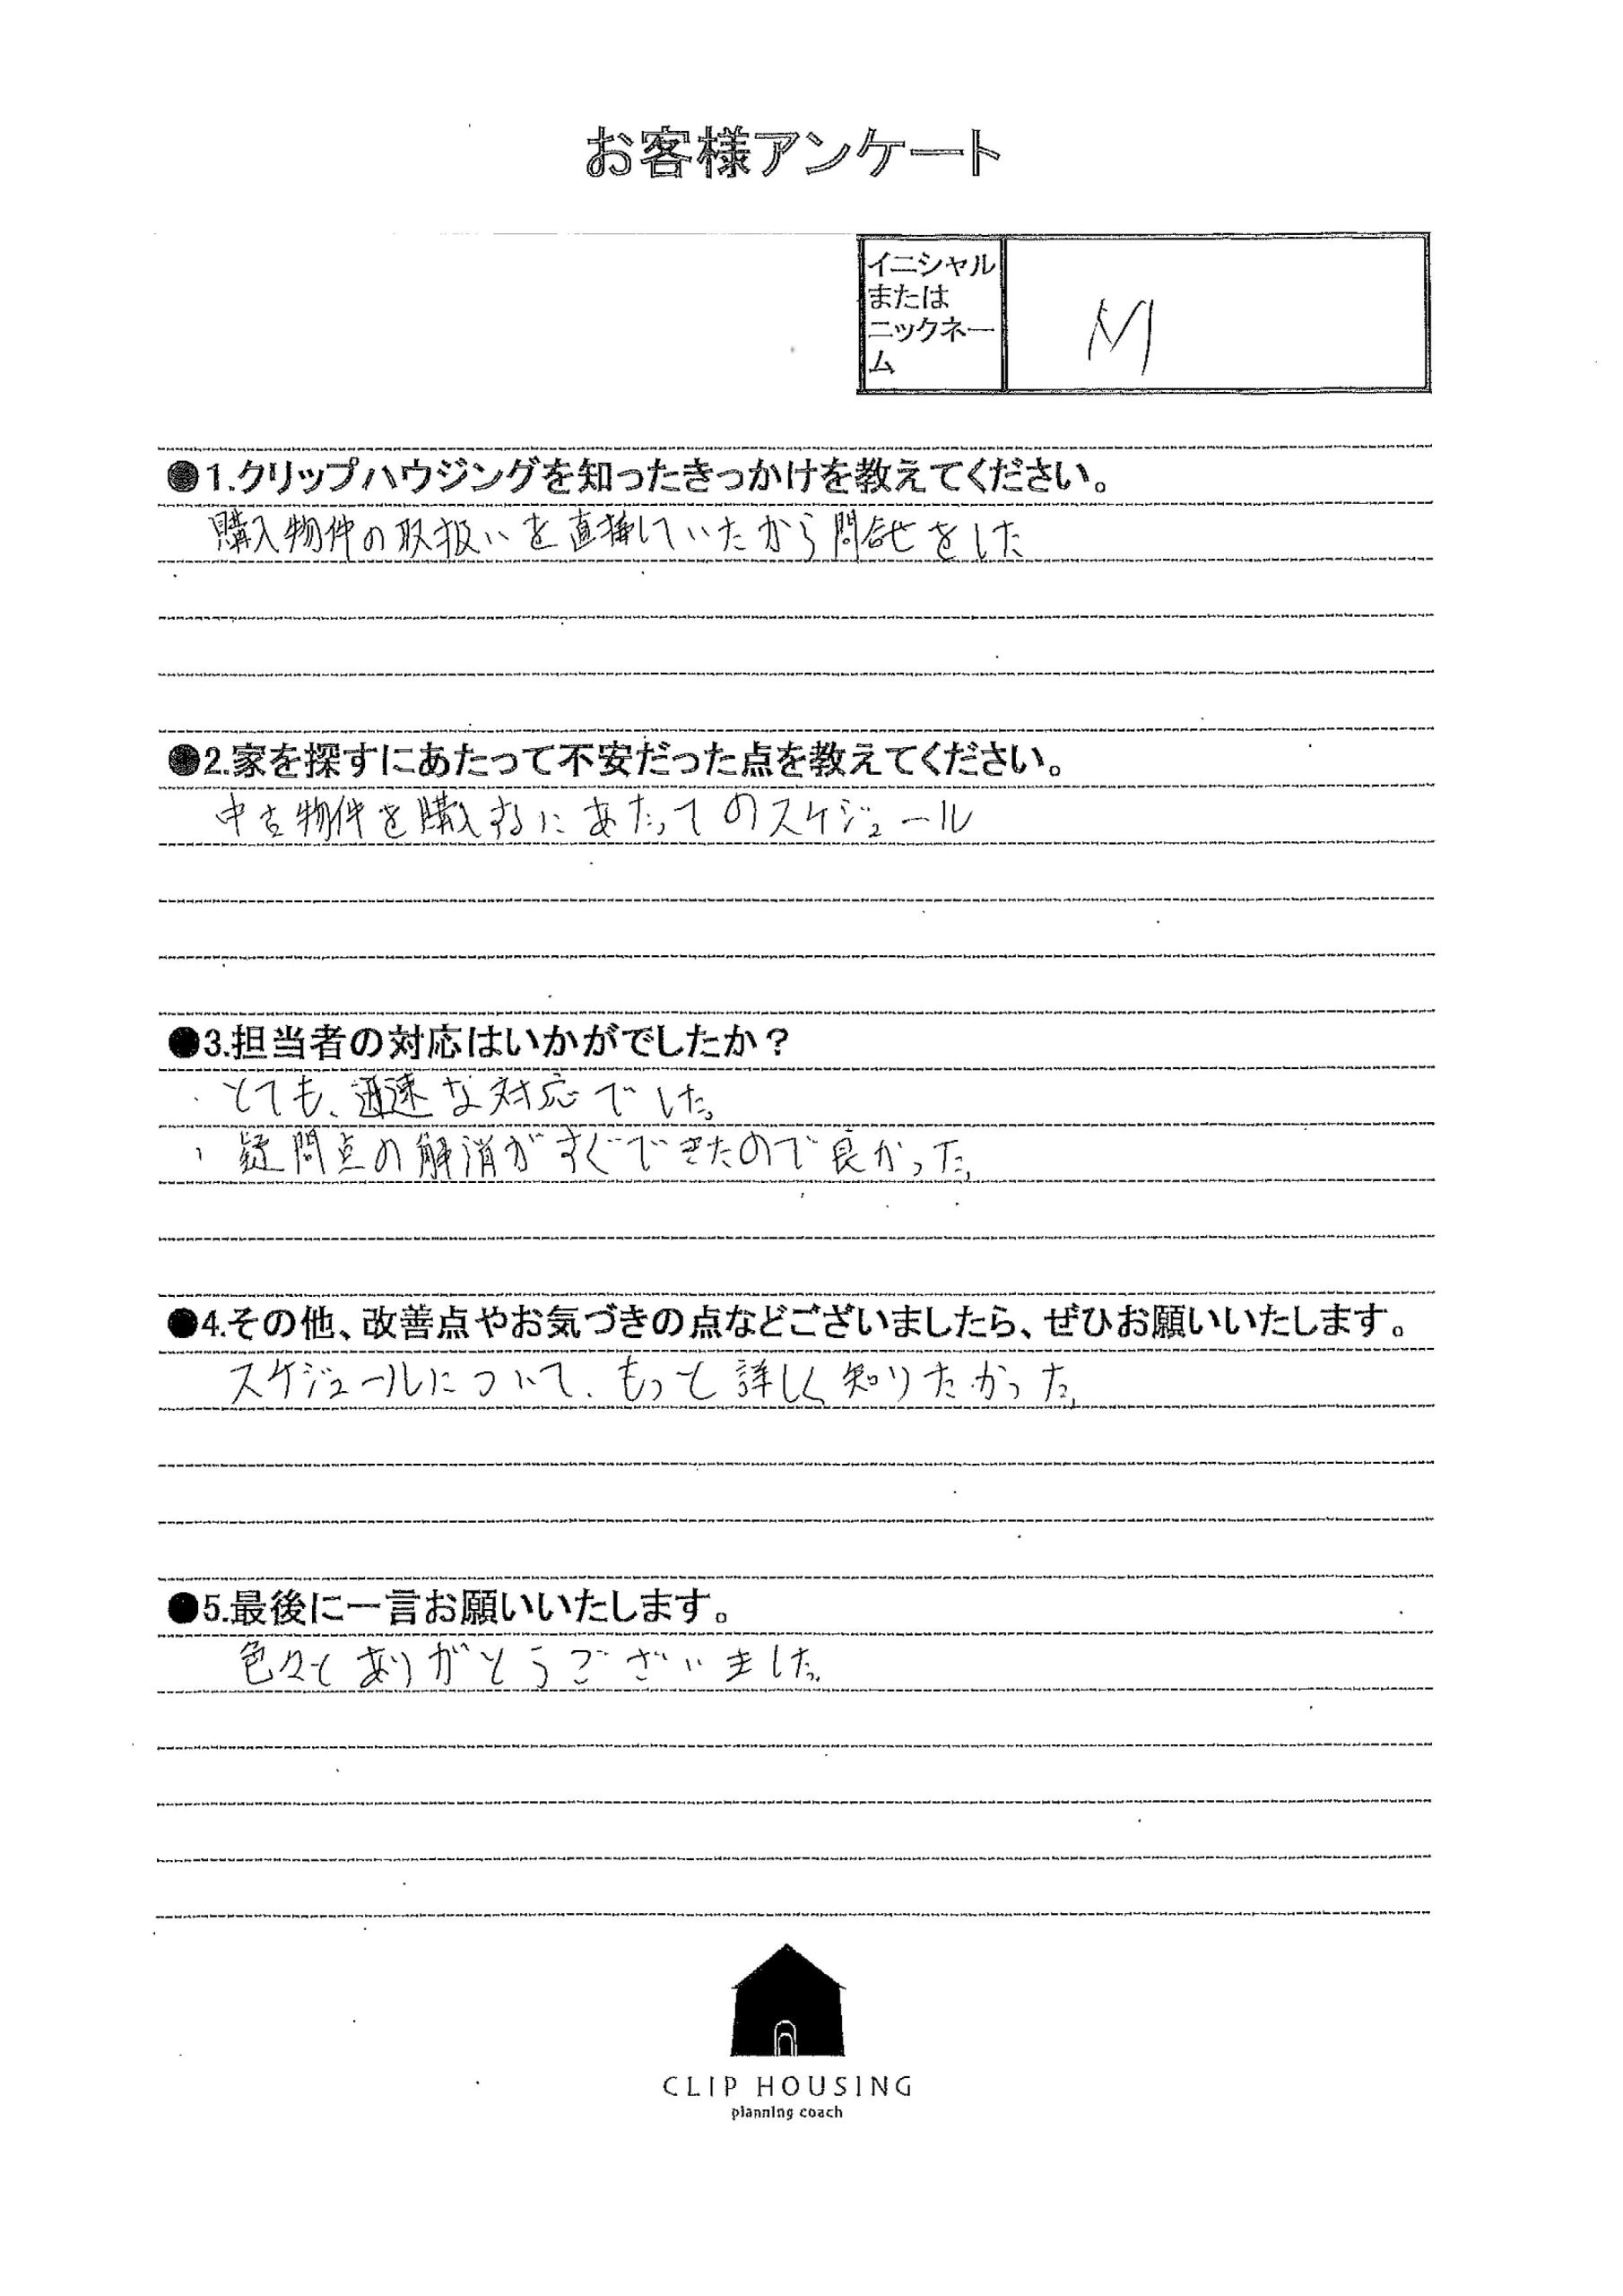 お客様アンケート
イニシャル
または
ニックネー
ム
M
●1.クリップハウジングを知ったきっかけを教えてください。
購入物件の取扱いを直接していたから問合せをした
●2.家を探すにあたって不安だった点を教えてください。
中古物件を購入するにあたってのスケジュール
●3.担当者の対応はいかがでしたか？
・とても、迅速な対応でした。
・疑問点の解消がすぐできたので良かった。
●4.その他、改善点やお気づきの点などございましたら、ぜひお願いいたします。
スケジュールについて、もっと詳しく知りたかった。
●5.最後に一言お願いいたします。
色々とありがとうございました。
CLIP HOUSING
planning coach